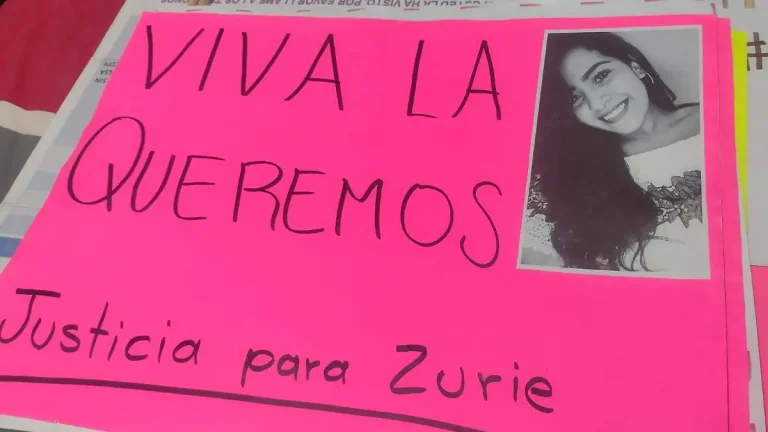 LA HA VISTO, POR FAVOR LLAME A LOS
VIVA LA
QUEREMOS
Justicia para Zurie
#